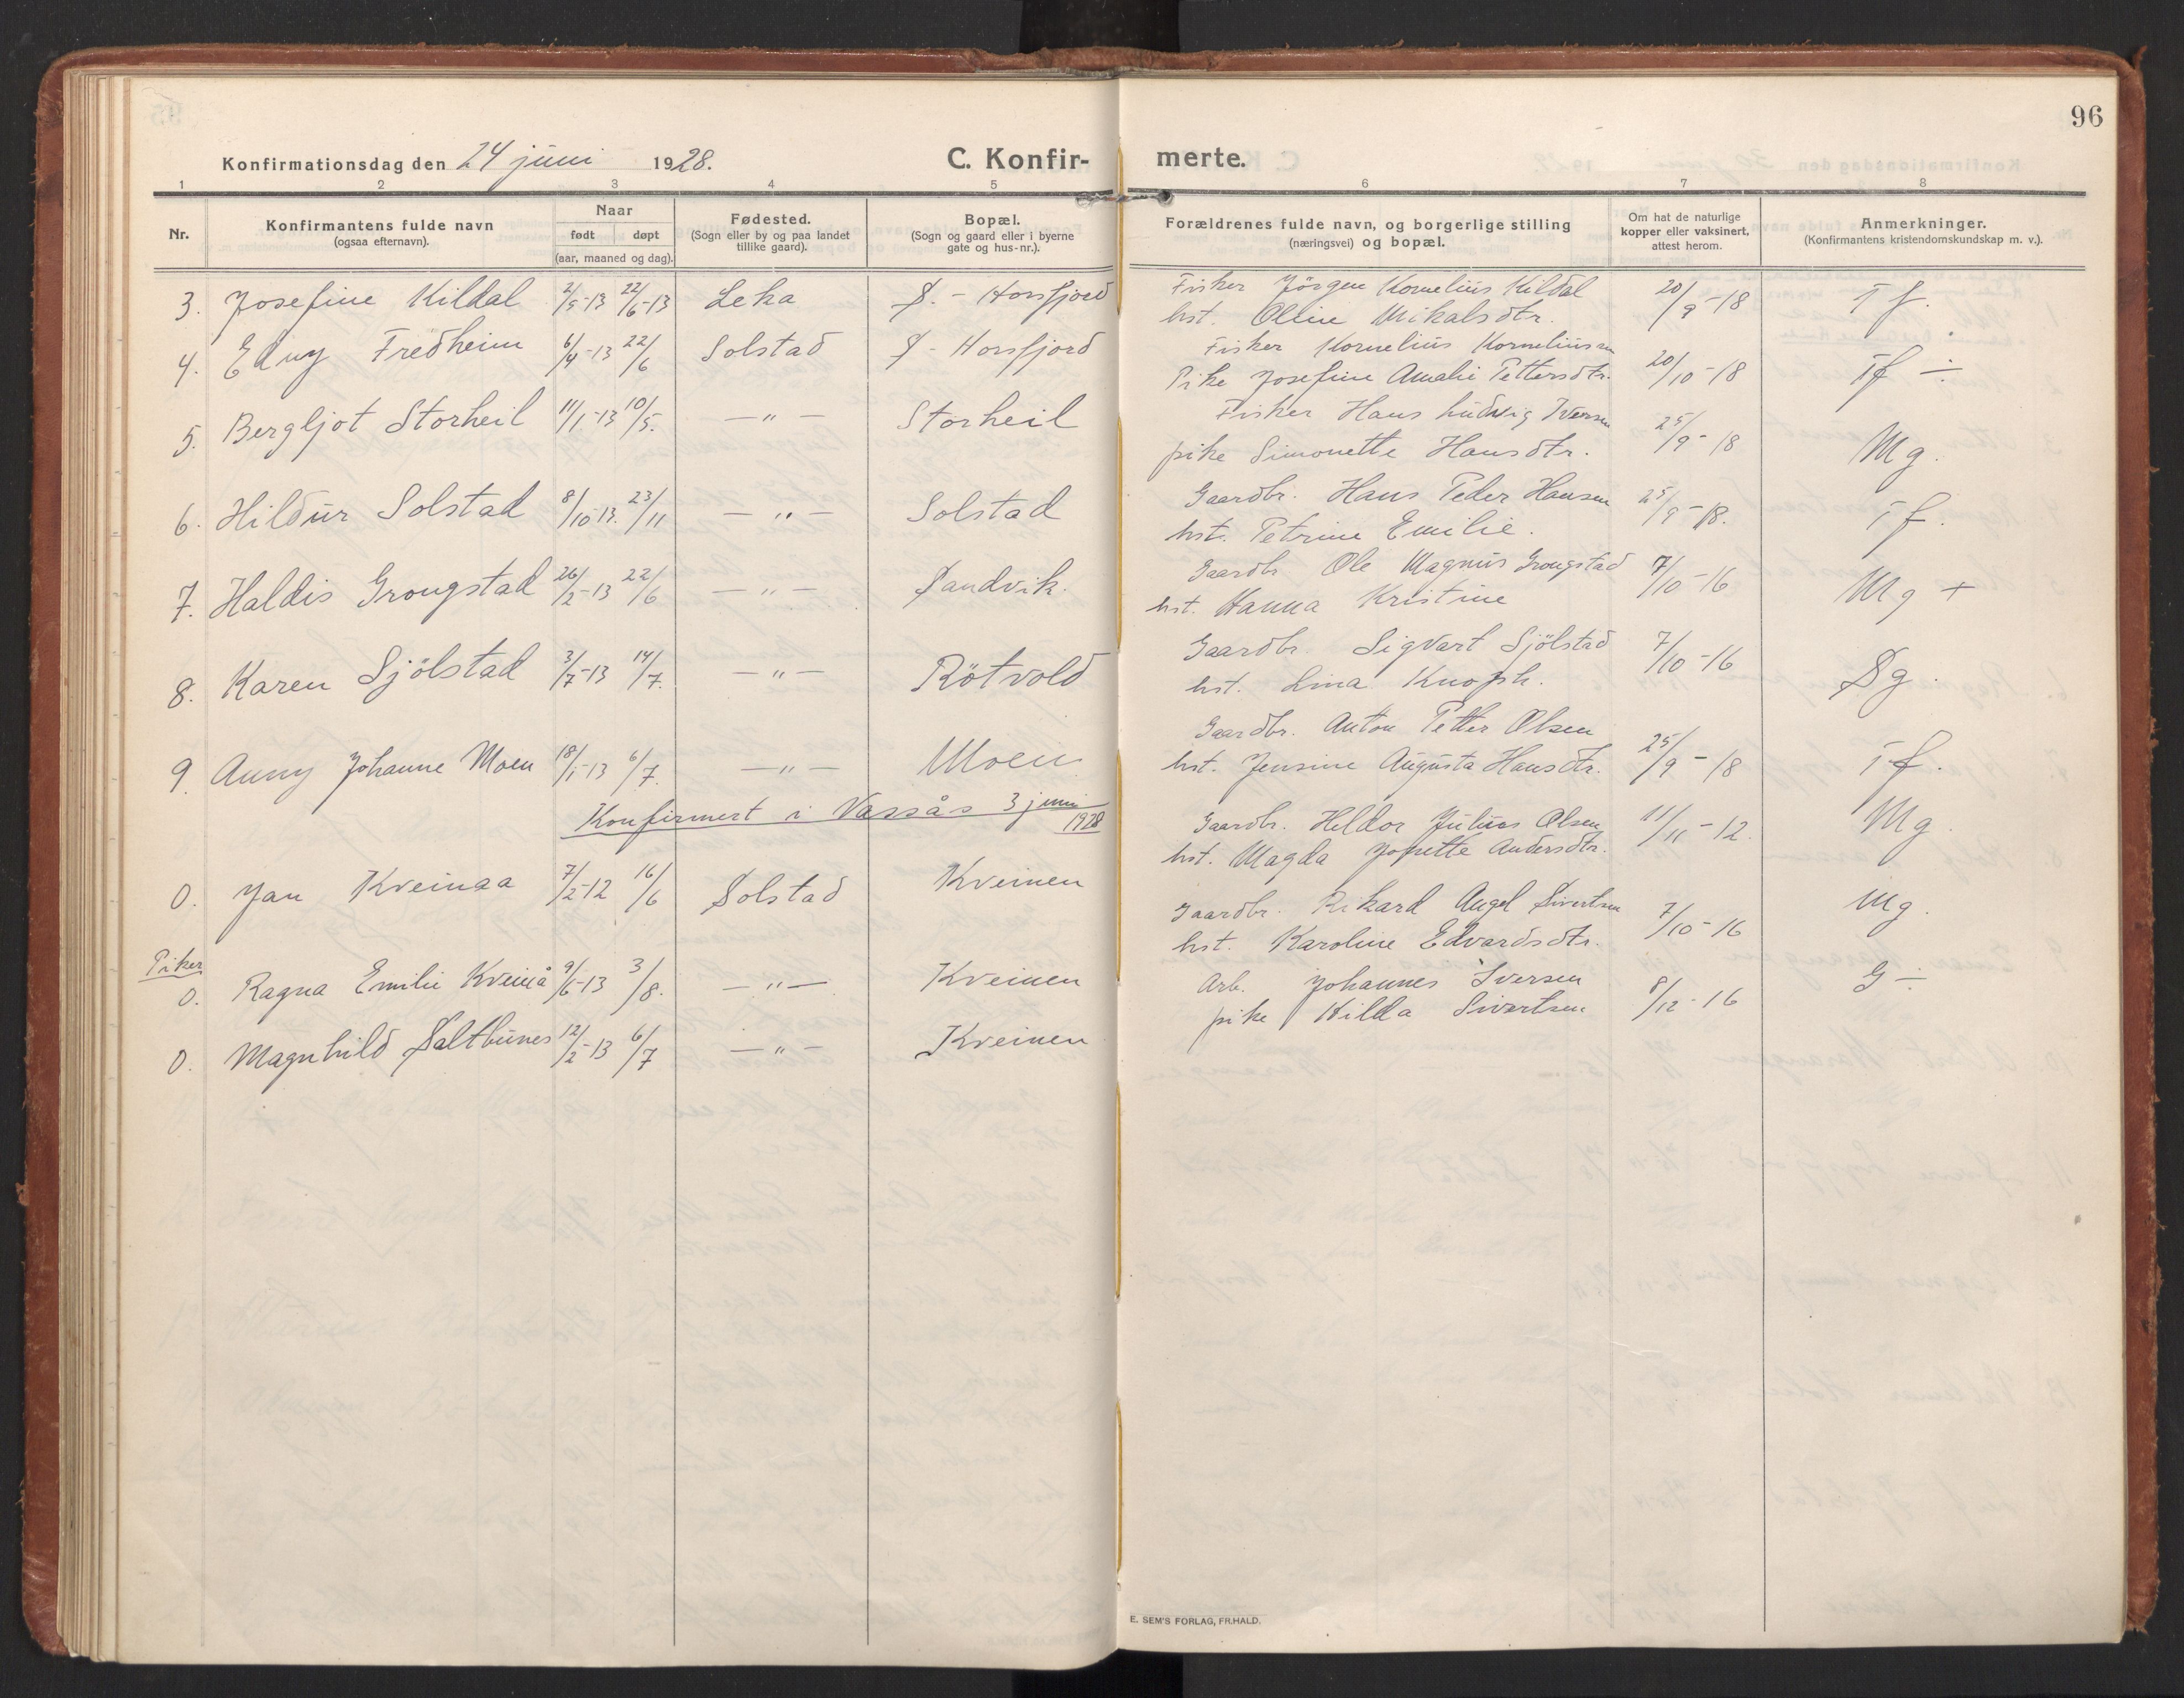 96
Konfirmationsdag den 24 juni 1928. C. Konfir- merte.
1 2 3 4 5 6 7 8
Nr.
Konfirmantens fulde navn
(ogsaa efternavn).
Naar
født døpt
(aar, maaned og dag).
Fødested.
(Sogn eller by og paa landet
tillike gaard).
Bopæl.
(Sogn og gaard eller i byerne
gate og hus-nr.).
Forældrenes fulde navn, og borgerlige stilling
(næringsvei) og bopæl.
Om hat de naturlige
kopper eller vaksinert,
attest herom.
Anmerkninger.
(Konfirmantens kristendomskundskap m. v.).
Fisker Jörgen Kornelius Kildal
3. Josefine Kildal 2/5-13 22/6-13 Leka S. - Horsfjord 20/9-18 Tf.
hst. Oline Mikalsdtr.
Fisker Kornelius Korneliussen
4. Edny Fredheim 6/4-13 22/6 Solstad S - Horsfjord 20/10-18 Tf ÷
Pike Josefine Amalie Pettersdtr.
Fisker Hans Ludvig Iversen
5. Bergljot Storheil 11/1-13 10/5. —"— Storheil 25/9-18 Mg.
pike Simonette Hansdtr.
Gaardbr. Hans Peder Hansen
6. Hildur Solstad 8/10-13. 23/11 —"— Solstad 25/9-18. Tf.
hst. Petrine Emilie.
Gaardbr Ole Magnus Grongstad
7. Haldis Grongstad 26/2-13 22/6 —"— Sandvik. 7/10-16 Mg +
hst. Hanna Kristine
Gaardbr. Sigvart Sjölstad
8. Karen Sjölstad 3/7-13 14/7. —"— Rötvold 7/10-16 Sg.
hst. Lina Knoph.
Gaardbr. Anton Petter Olsen
9. Anny Johanne Moen 18/1-13 6/7. —"— Moen 25/9-18 Tf.
hst. Jensine Augusta Hansdtr.
Konfirmert i Vassås 3 juni 1928
Gaardbr. Heldor Julius Olsen
0. Jan Kveinaa 7/2-12 16/6 Solstad Kveinen 11/11-12. Mg.
hst. Magda Josette Andersdtr.
Piker
Gaardbr. Rikard Angel Sivertsen
0. Ragna Emilie Kveinå 9/6-13 3/8. —"— Kveinen 7/10-16 Mg.
hst. Karoline Edvardsdtr.
Arb. Johannes Iversen
0. Magnhild Saltbunes 12/2-13 6/7 —"— Kveinen 8/12-16 G ÷
pike Hilda Sivertsen
E. SEM'S FORLAG, FR.HALD.